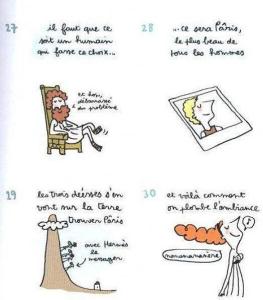 27
il faut que ce
soit un humain
qui fasse ce choix...
et hop,
débarrassé
d'un problème
28
...ce sera Pâris,
le plus beau de
tous les hommes
29
les trois déesses s'en
vont sur la terre
trouver Pâris
avec Hermès
le messager
30
et voilà comment
on plombe l'ambiance
nananananère